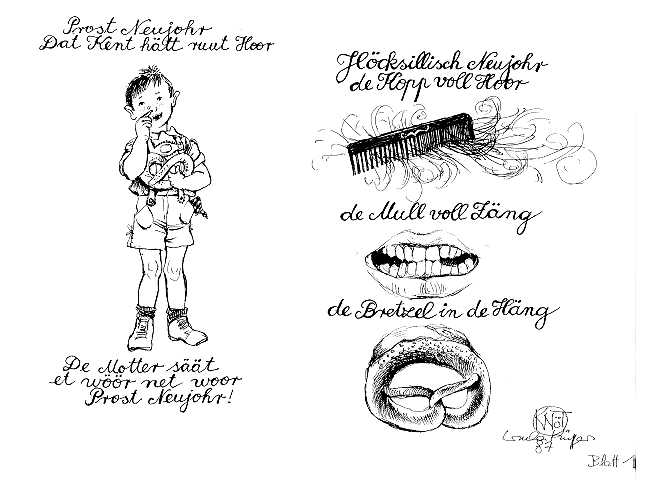 Prost Neujohr
Dat Kent hätt ruut Hoor
De Motter säät
et wöör net woor
Prost Neujohr!
Jlöcksillisch Neujohr
de Kopp voll Hoor
de Mull voll Zäng
de Bretzel in de Häng
87
Blatt 1